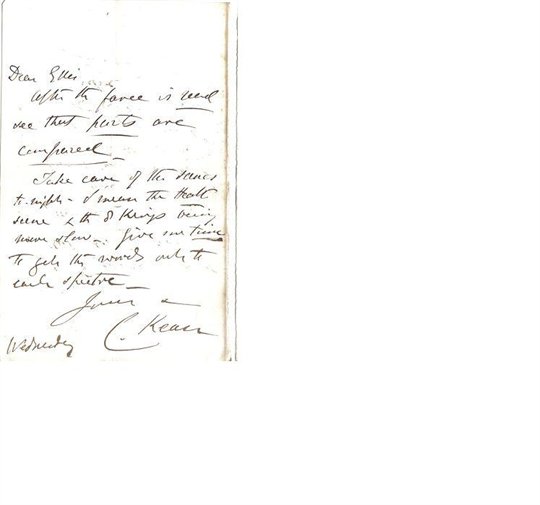 Dear Ellis
After the farce is read
see that parts are
compared_
Take care of the scenes
to-night - I mean the Heath
scene & the 8 Kings being
more slow - Give me time
to get the words out to
each spectre_
Yours
C. Kean
Wednesday